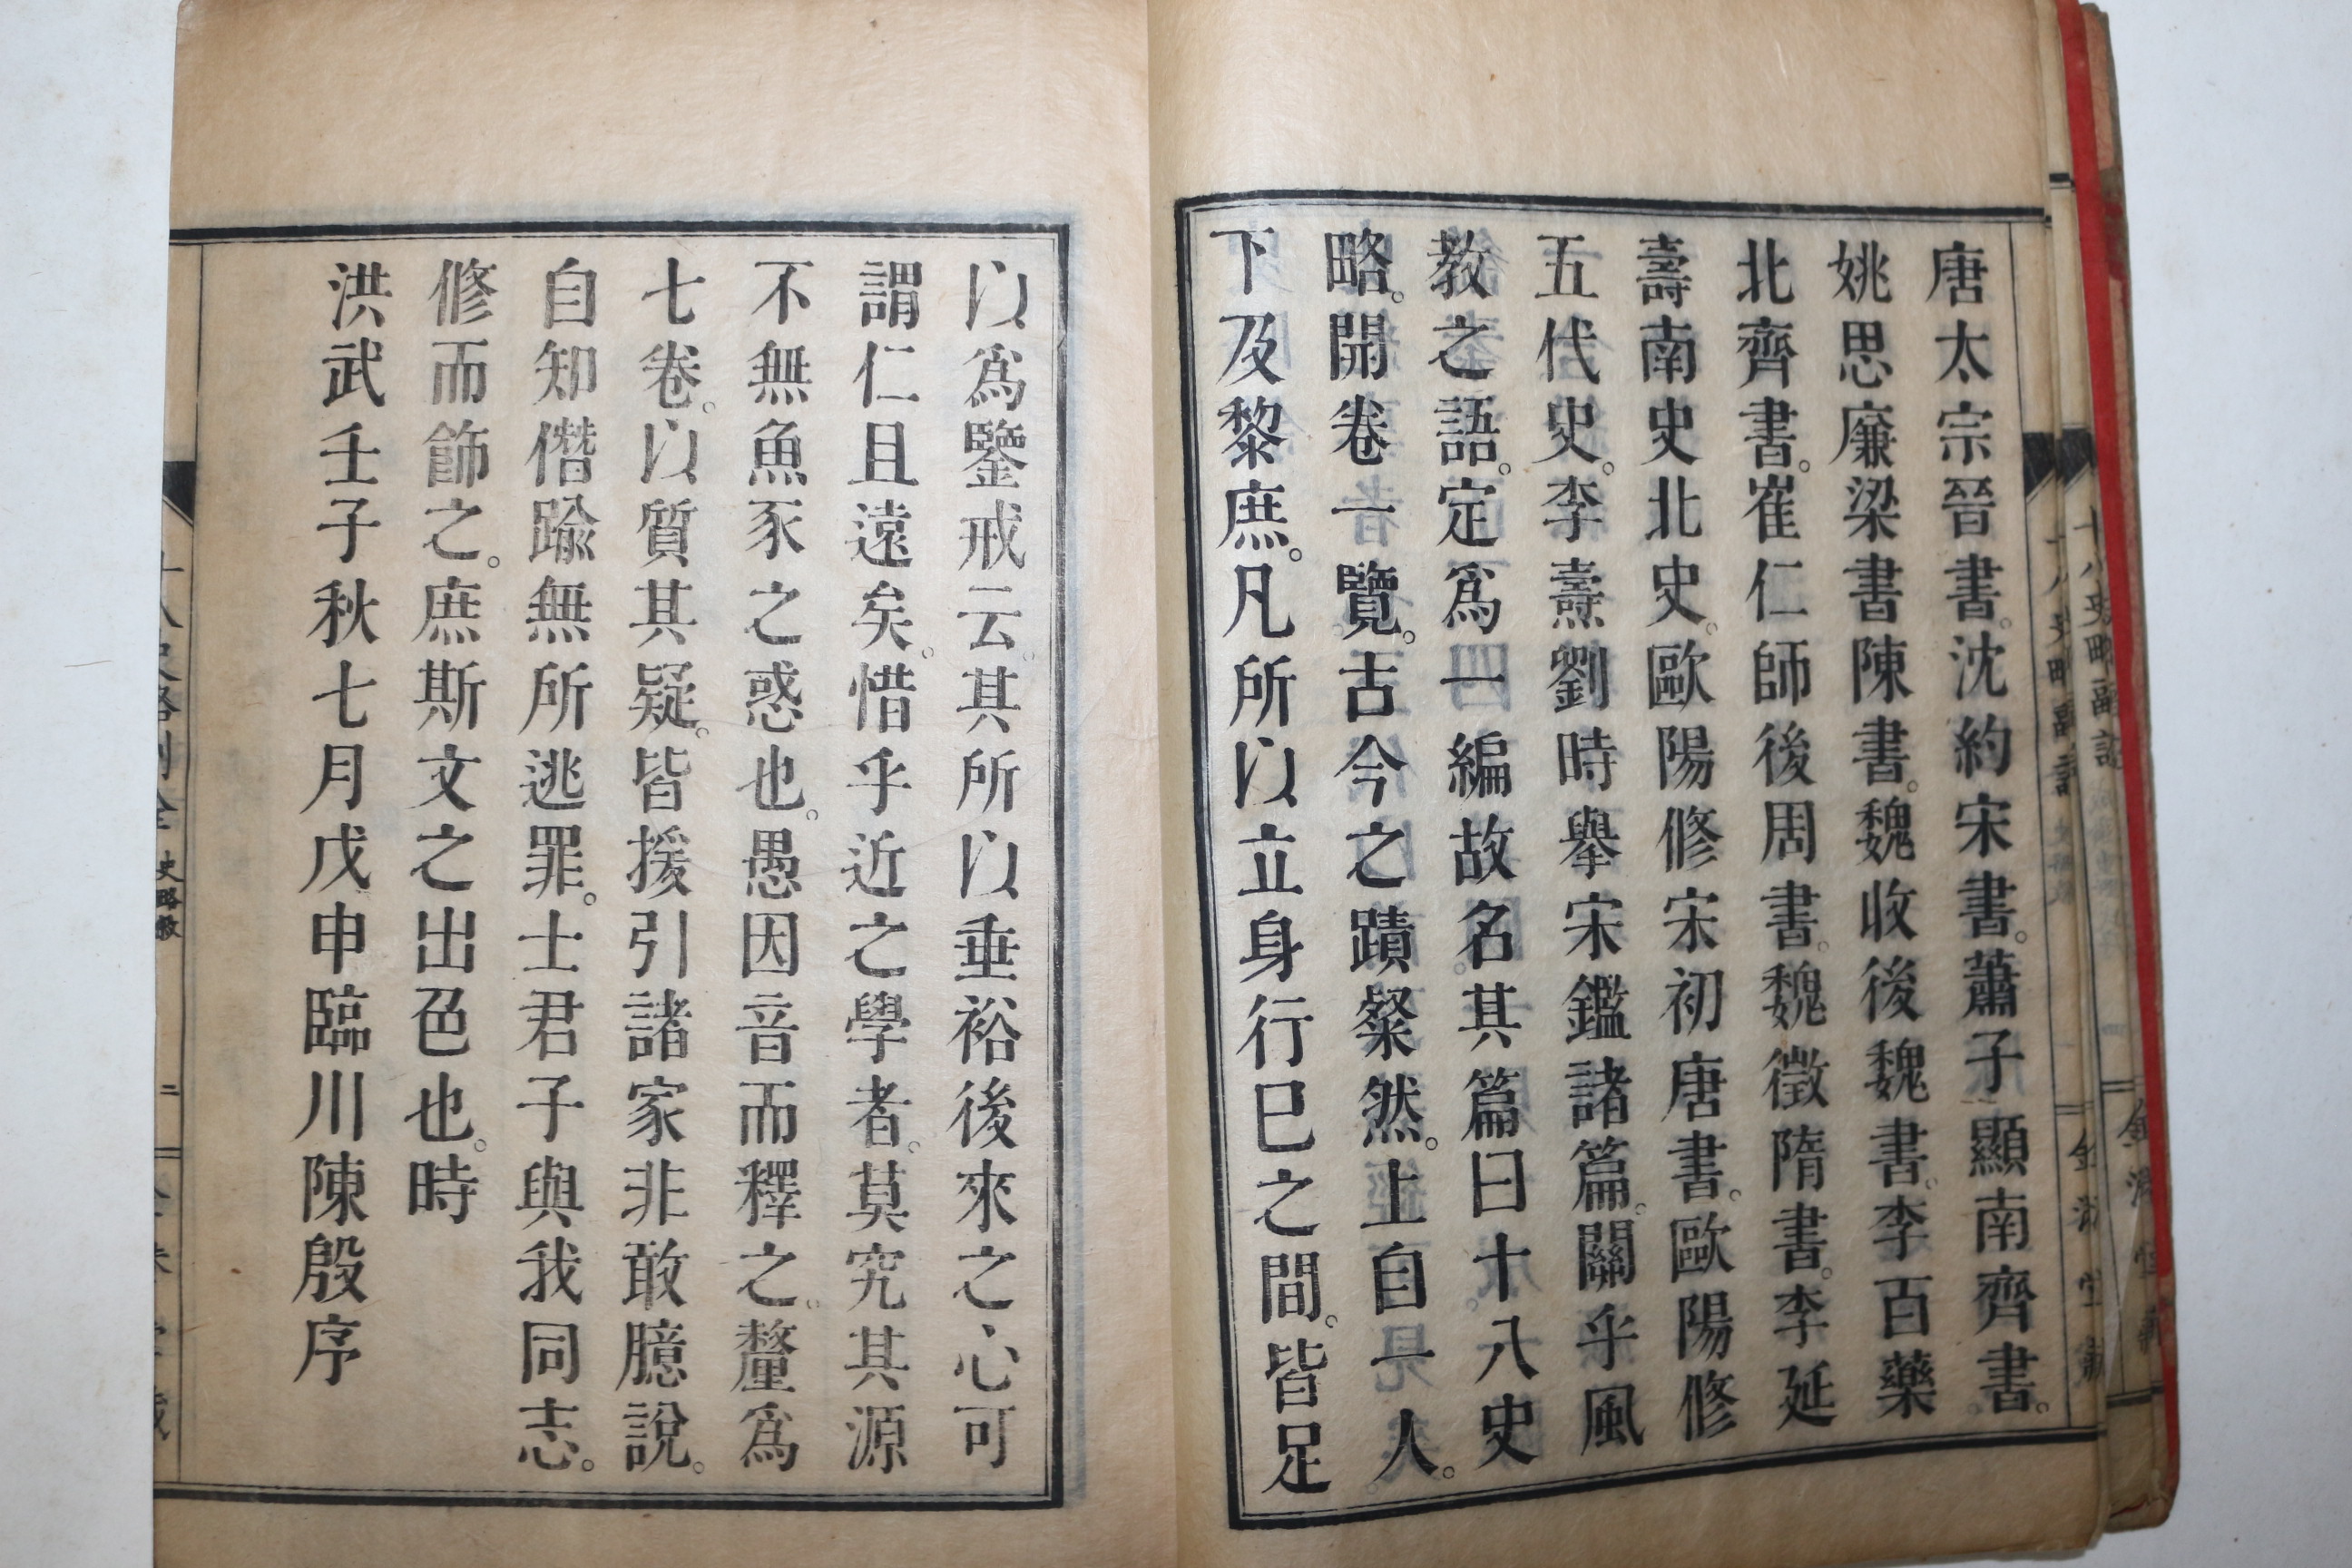 唐太宗晉書。沈約宋書。蕭子顯南齊書。
姚思廉梁書陳書。魏收後魏書。李百藥
北齊書。崔仁師後周書。魏徵隋書。李延
壽南史北史。歐陽修宋初唐書。歐陽修
五代史。李燾劉時舉宋鑑諸篇。關乎風
教之語。定爲一編故名。其篇曰十八史
略。開卷一覽。古今之蹟粲然。上自一人。
下及黎庶。凡所以立身行巳之間。皆足
以爲鑒戒云。其所以垂裕後來之心可
謂仁且遠矣。惜乎近之學者。莫究其源
不無魚豕之惑也。愚因音而釋之。釐爲
七卷。以質其疑。皆援引諸家非敢臆說。
自知僭踰無所逃罪。士君子與我同志。
修而飾之。庶斯文之出色也。時
洪武壬子秋七月戊申臨川陳殷序